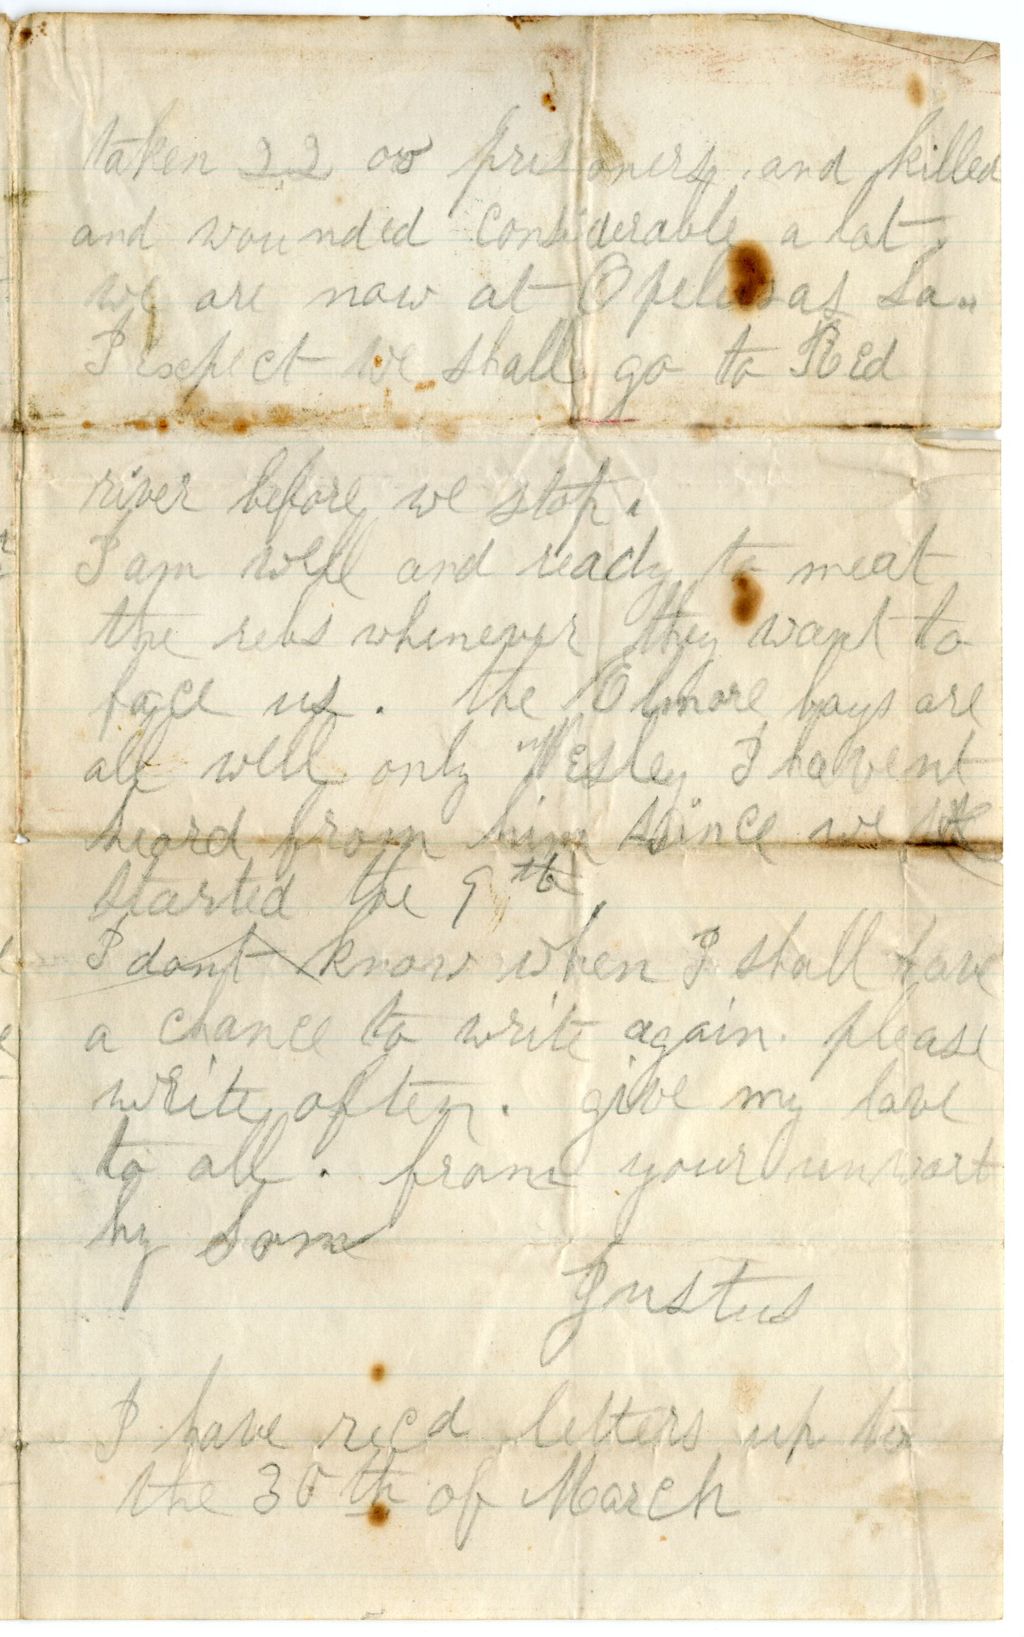 taken 22 00 prisoners, and killed
and wounded Considerable a lot.
we are now at Opelusas La..
I expect we shall go to Red
river before we stop.
I am well and ready to meat
the rebs whenever they want to
face us. the Elmore boys are
all well only Wesley I havent
heard from him since we
started the 9th
I dont know when I shall have
a chance to write again. please
write often. give my love
to all. from your unwort
hy son
Justus
I have recd letters up to
the 30th of March